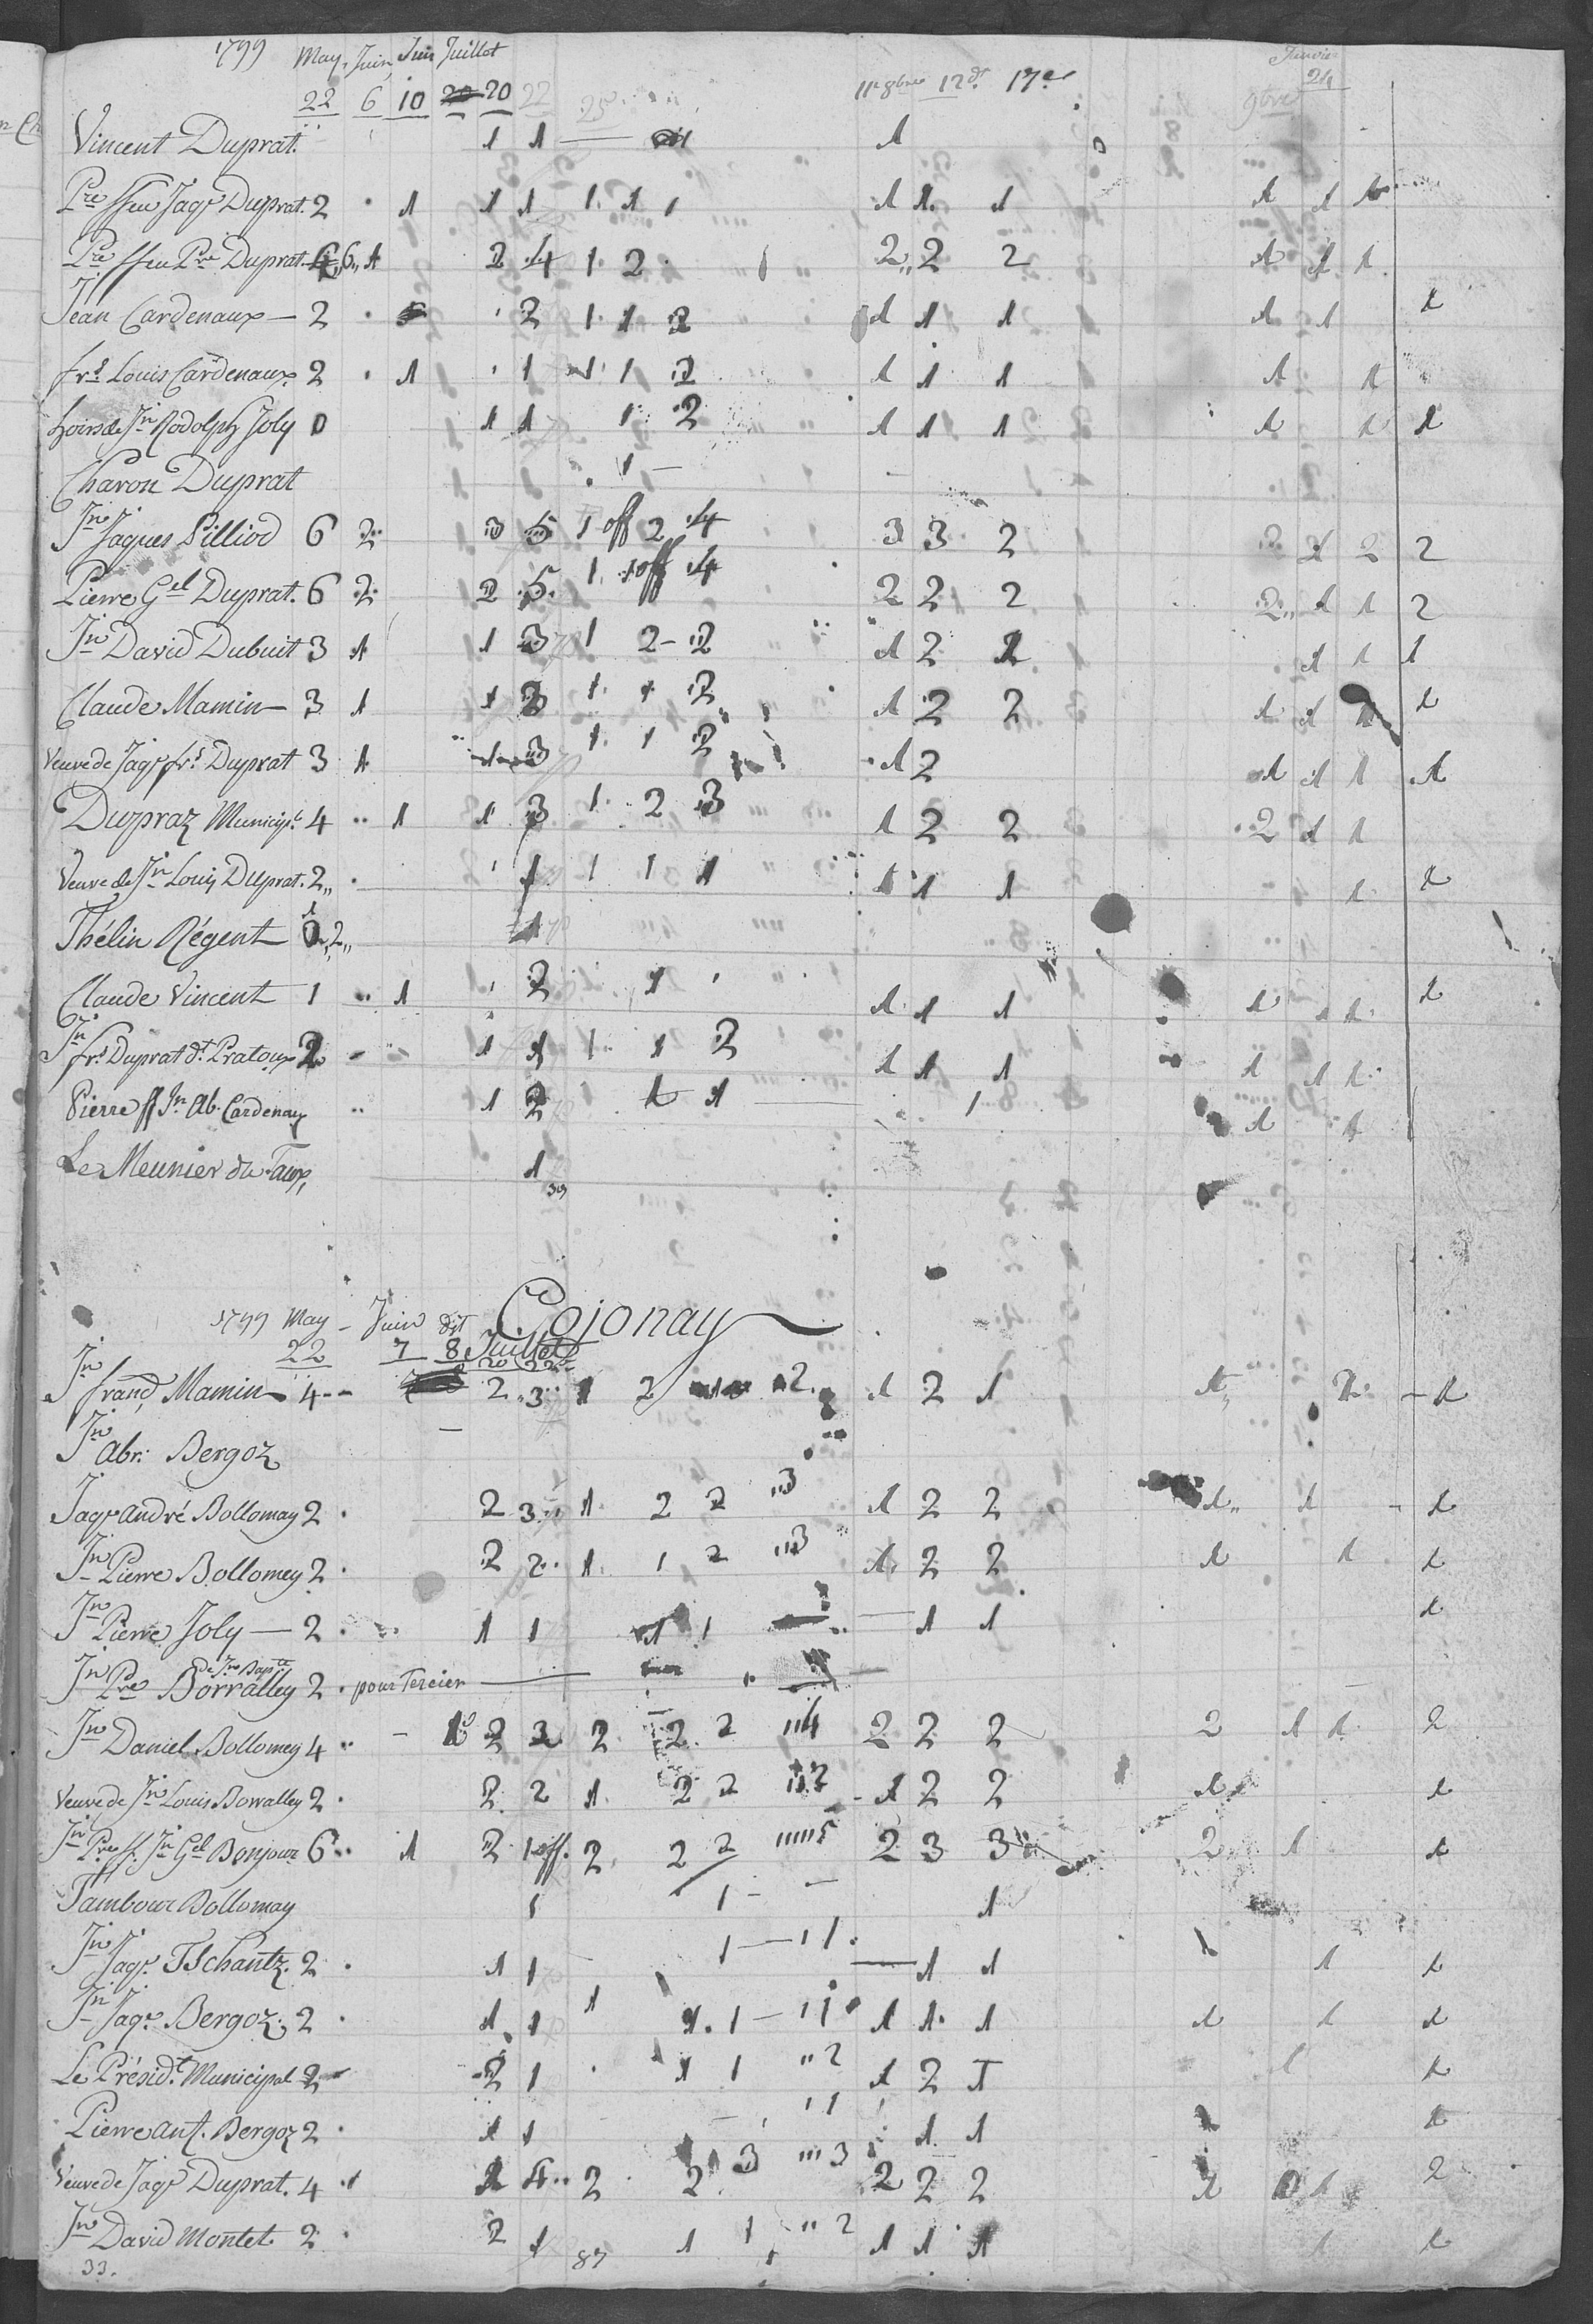 1799 May Juin Juin Juillet 11e 8bre 12dt 17e 9bre Janvier
22 6 10 20 22 25 24
Vincent Duprat. 1 1 — 1 1
Pre ffeu Jaqs Duprat. 2 1 1 1 1. 1 1 1 1. 1 1 1 1
Pre ffeu Pre Duprat. 6,, 1 2 4 1. 2 2,, 2 2 1 1 1
Jean Cardenaux — 2 2 1. 1 2 1 1 1 1 1 1
frs Louis Cardenaux 2 1 1 1. 1 2 1 1 1 1 1
hoirs de Jn Rodolph Joly 0 1 1 1 2 1 1 1 1 1 1
Charon Duprat 1 —
Jn Jaques Pilliod 6 2 3 5 1 off 2 4 3 3 2 2 1 2 2
Pierre Gel Duprat. 6 2 2 5. 1. 1 off 4 2 2 2 2,, 1 1 2
Jn David Dubuit 3 1 1 3 1 2 - 2 1 2 2 1 1 1
Claude Mamin — 3 1 1 3 1. 1 2 1 2 2 1 1 1 1
Veuve de Jaqs frs Duprat 3 1 1 3 1. 1 2 1 2 1 1 1 1
Dupraz Municipl 4 1 1 3 1. 2 3 1 2 2 2 1 1
Veuve de Jn Louis Duprat. 2,, 1 1 1 1 1 1 1 1 1
Thélin Régent 2,, 1
Claude Vincent 1 1 2 1 1 1 1 1 1 1 1
Jn frs Duprat dt Pratoux 2 1 1 1. 1 2 1 1 1 1 1 1
Pierre ff Jn Ab. Cardenaux 1 2 1 1 — 1 1 1
Le Meunier du Taux, 1
39
Cojonay
1799 May Juin dit Juillet
22 7 8 20 22
Jn frand Mamin 4 2 3 1 2 2. 1 2 1 1 1 1
Jn Abr. Bergoz —
Jaqs André Bollomay 2 2 3 1. 2 2 3 1 2 2 1,, 1 1
Jn Pierre Bollomey 2 2 2. 1. 1 2 3 1. 2 2 1 1 1
Jn Pierre Joly — 2 1 1 1 1 — 1 1 1
Jn Pre Borralley de Jn Bapte 2. pour Tercier —
Jn Daniel Bollomey 4 2 3 2. 2 2 4 2 2 2 2 1 1 2
Veuve de Jn Louis Borralley 2. 2 2 1. 2 2 1 2 2 1 1
Jn Pre ff. Jn Gel Bonjour 6 1 2 1 off. 2 2 2 5 2 3 3 2 1 1
Tambour Bollomay 1 1 - 1
Jn Jaqs Tschantz. 2 1 1 1 — 1 — 1 1 1 1 1
Jn Jaqs Bergoz. 2 1. 1 1 1. 1 — 1 1 1. 1 1 1 1
Le Présidt. Municipal 2 2 1 1 1 2 1 2 1 1 1
Pierre Ant. Bergoz 2 1 1 1 1 1 1 1
Veuve de Jaqs Duprat. 4 4 2 2. 3 3 2 2 2 1 1 2
Jn David Montet 2 2 1 1 1 2 1 1 1 1 1
33. 87